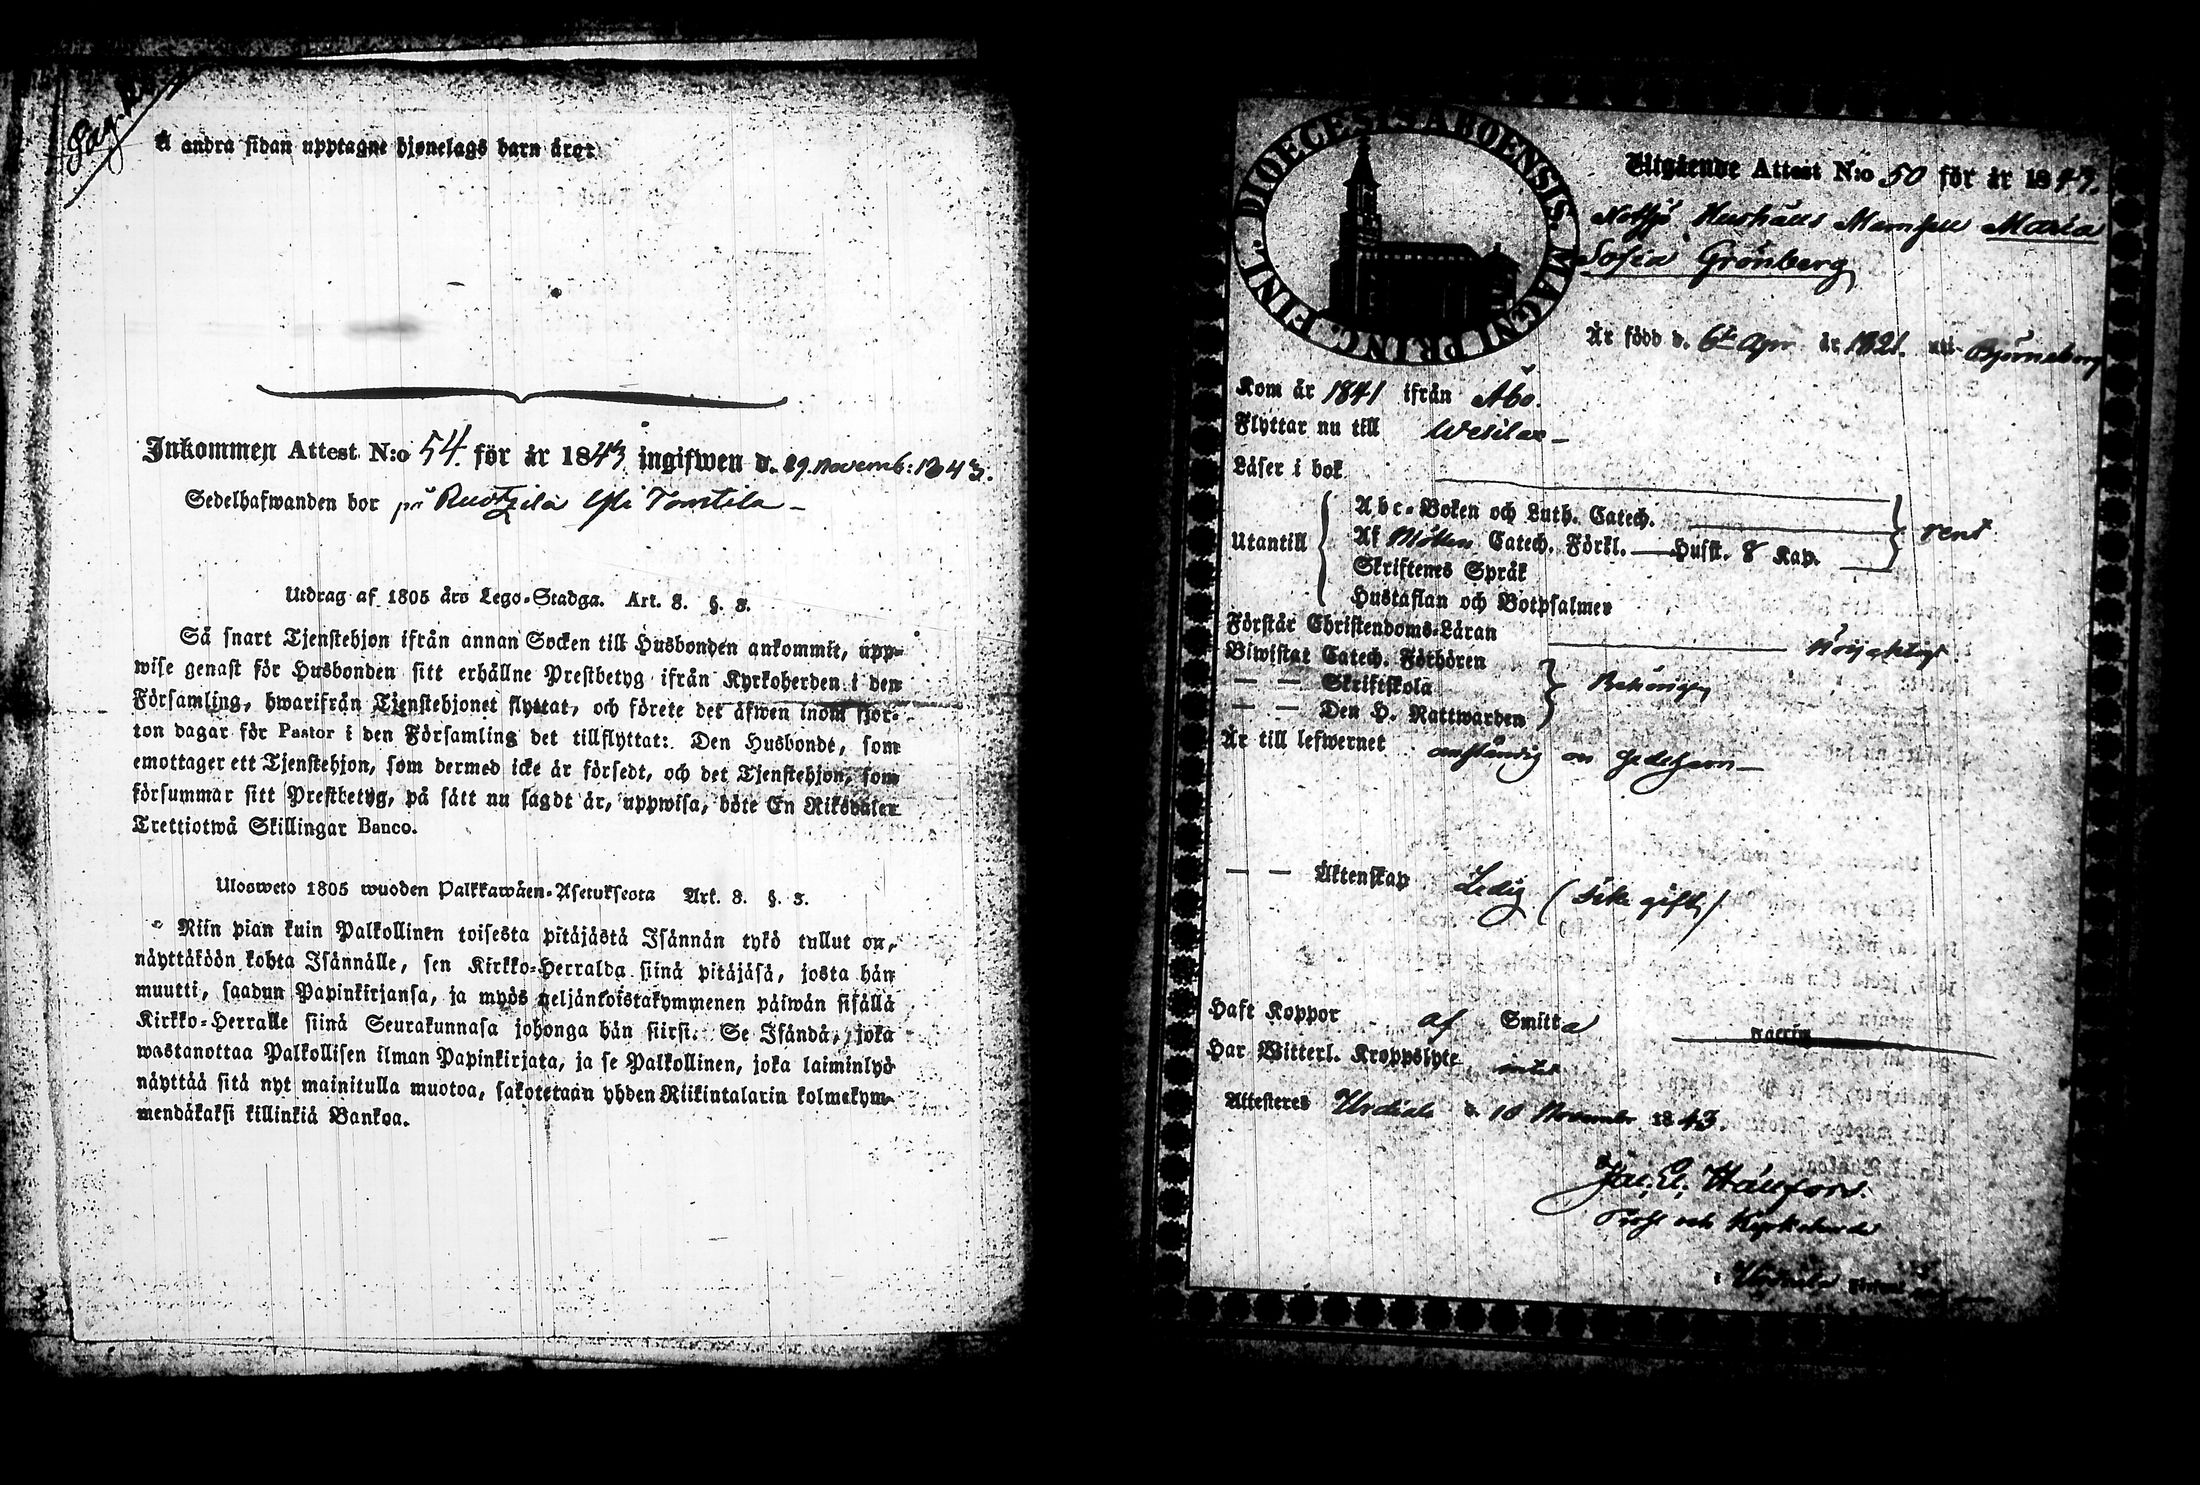 Pag.
Å andra sidan upptagne hjonelags barn äro:
Inkommen Attest N:o 54. för år 1843 ingifwen d. 29. Novemb: 1843.
Sedelhafwanden bor på Ruotzila Yli Tomtila –
Utdrag af 1805 års Lego-Stadga. Art. 8. §. 3.
Så snart Tjenstehjon ifrån annan Socken till Husbonden ankommit, upp-
wise genast för Husbonden sitt erhållne Prestbetyg ifrån Kyrkoherden i den
Församling, hwarifrån Tjenstehjonet flyttat, och förete det äfwen inom fjor-
ton dagar för Pastor i den Församling det tillflyttat: Den Husbonde, som
emottager ett Tjenstehjon, som dermed icke är försedt, och det Tjenstehjon, som
försummar sitt Prestbetyg, på sätt nu sagdt är, uppwisa, böte En Riksdaler
Trettiotwå Skillingar Banco.
Ulosweto 1805 wuoden Palkkawäen-Asetuksesta Art. 8. §. 3.
Niin pian kuin Palkollinen toisesta pitäjästä Isännän tykö tullut on,
näyttäköön kohta Isännälle, sen Kirkko-Herralda siinä pitäjäsä, josta hän
muutti, saadun Papinkirjansa, ja myös neljänkoistakymmenen päiwän sisällä
Kirkko-Herralle siinä Seurakunnasa johonga hän siirsi. Se Isändä, joka
wastanottaa Palkollisen ilman Papinkirjata, ja se Palkollinen, joka laiminlyö
näyttää sitä nyt mainitulla muotoa, sakotetaan yhden Riikintalarin kolmekym-
mendäkaksi killinkiä Bankoa.
DIOECESIS ABOENSIS. MAGNI PRINC. FINL.
Utgående Attest N:o 50 för år 1843.
Hushålls Mamsell Maria
Sofia Grönberg
Är född d. 6te Apr år 1821. uti Björneborg
Kom år 1841 ifrån Åbo.
Flyttar nu till Wesilax –
Läser i bok
Utantill
Abc-Boken och Luth. Catech.
Af Catech. Förkl. — Husst. 8 Kap.
rent
Skriftenes Språk
Hustaflan och Botpsalmer
Förstår Christendoms-Läran
Biwistat Catech. Förhören
— — Skriftskola
— — Den H. Nattwarden
Är till lefwernet anständig och
— — Äktenskap Ledig (icke gift)
Haft Koppor af Smitta
Har Witterl. Kroppslyte
Attesteras Urdiala d. 10 November 1843.
Jac. E. Hällfors.
Prost och Kyrkoherde
i Urdiala